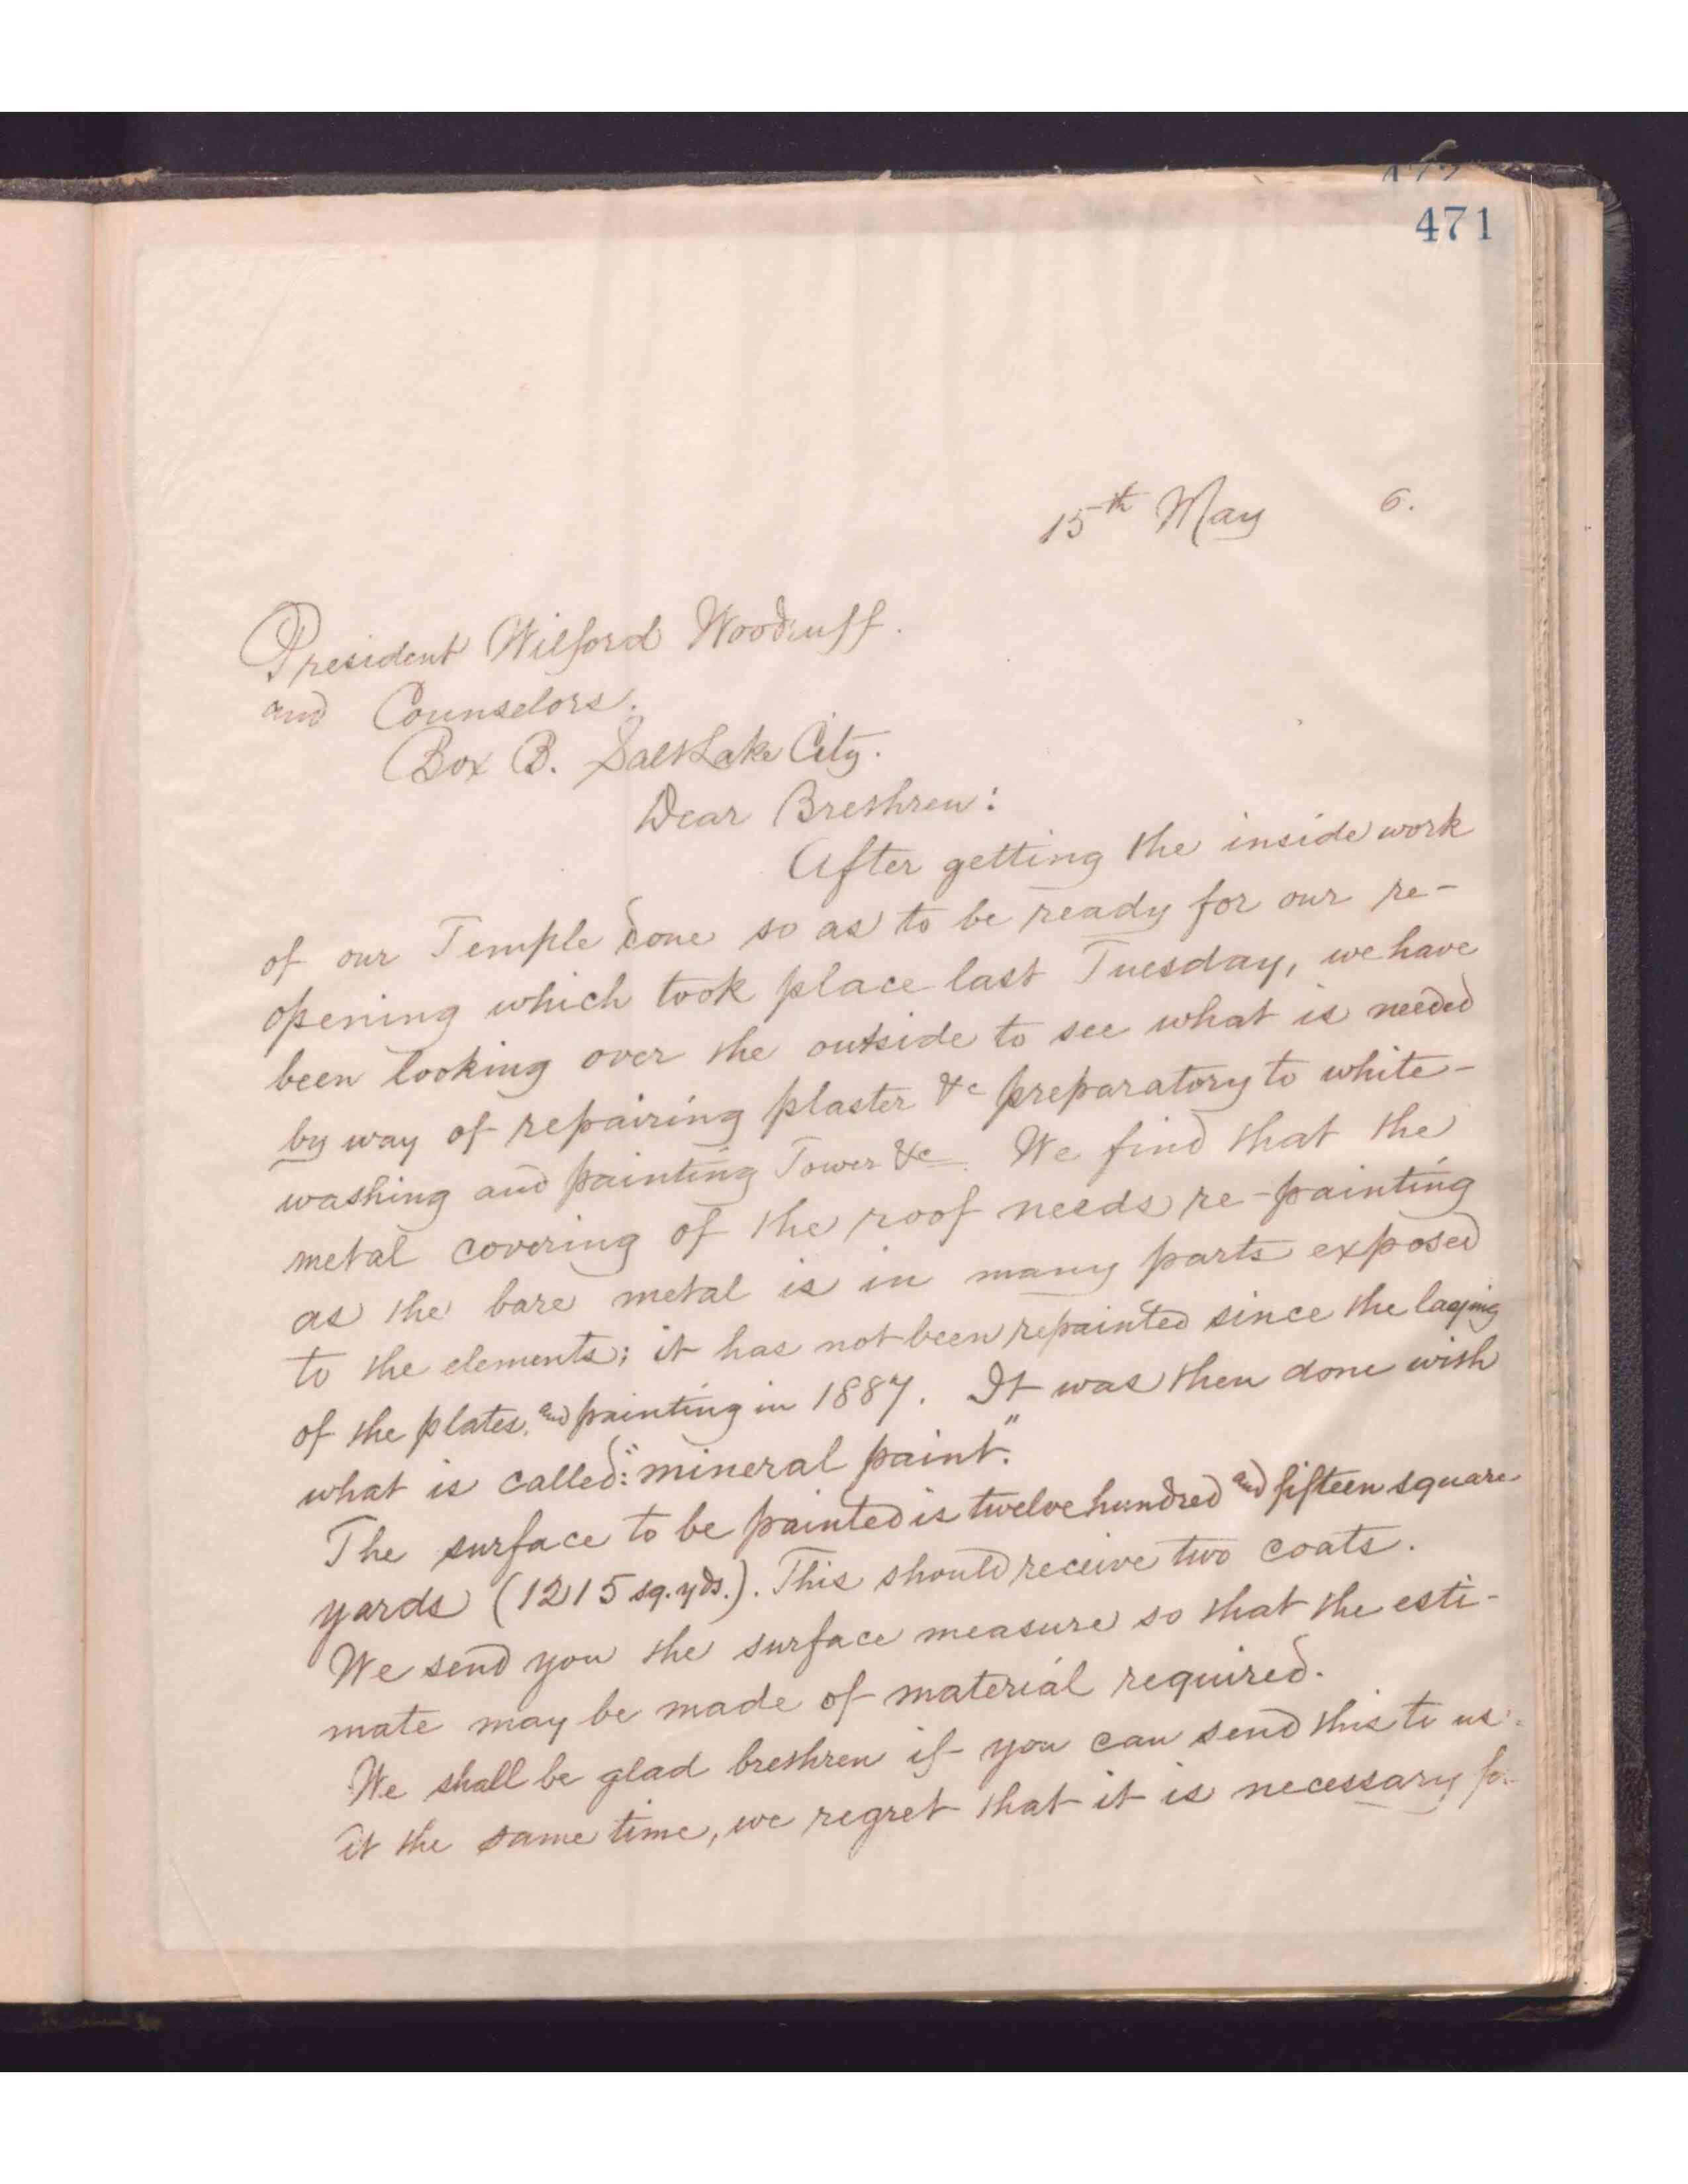 471
15th May 6.
President Wilford Woodruff.
and Counselors.
Box B. Salt Lake City.
Dear Brethren:
After getting the inside work
of our Temple done so as to be ready for our re-
opening which took place last Tuesday, we have
been looking over the outside to see what is needed
by way of repairing plaster &c preparatory to white-
washing and painting Tower &c. We find that the
metal covering of the roof needs re-painting
as the bare metal is in many parts exposed
to the elements; it has not been repainted since the laying
of the plates, and painting in 1887. It was then done with
what is called: "mineral paint."
The surface to be painted is twelve hundred and fifteen square
yards (1215 sq. yds.). This should receive two coats.
We send you the surface measure so that the esti-
mate may be made of material required.
We shall be glad brethren if you can send this to us.
At the same time, we regret that it is necessary for